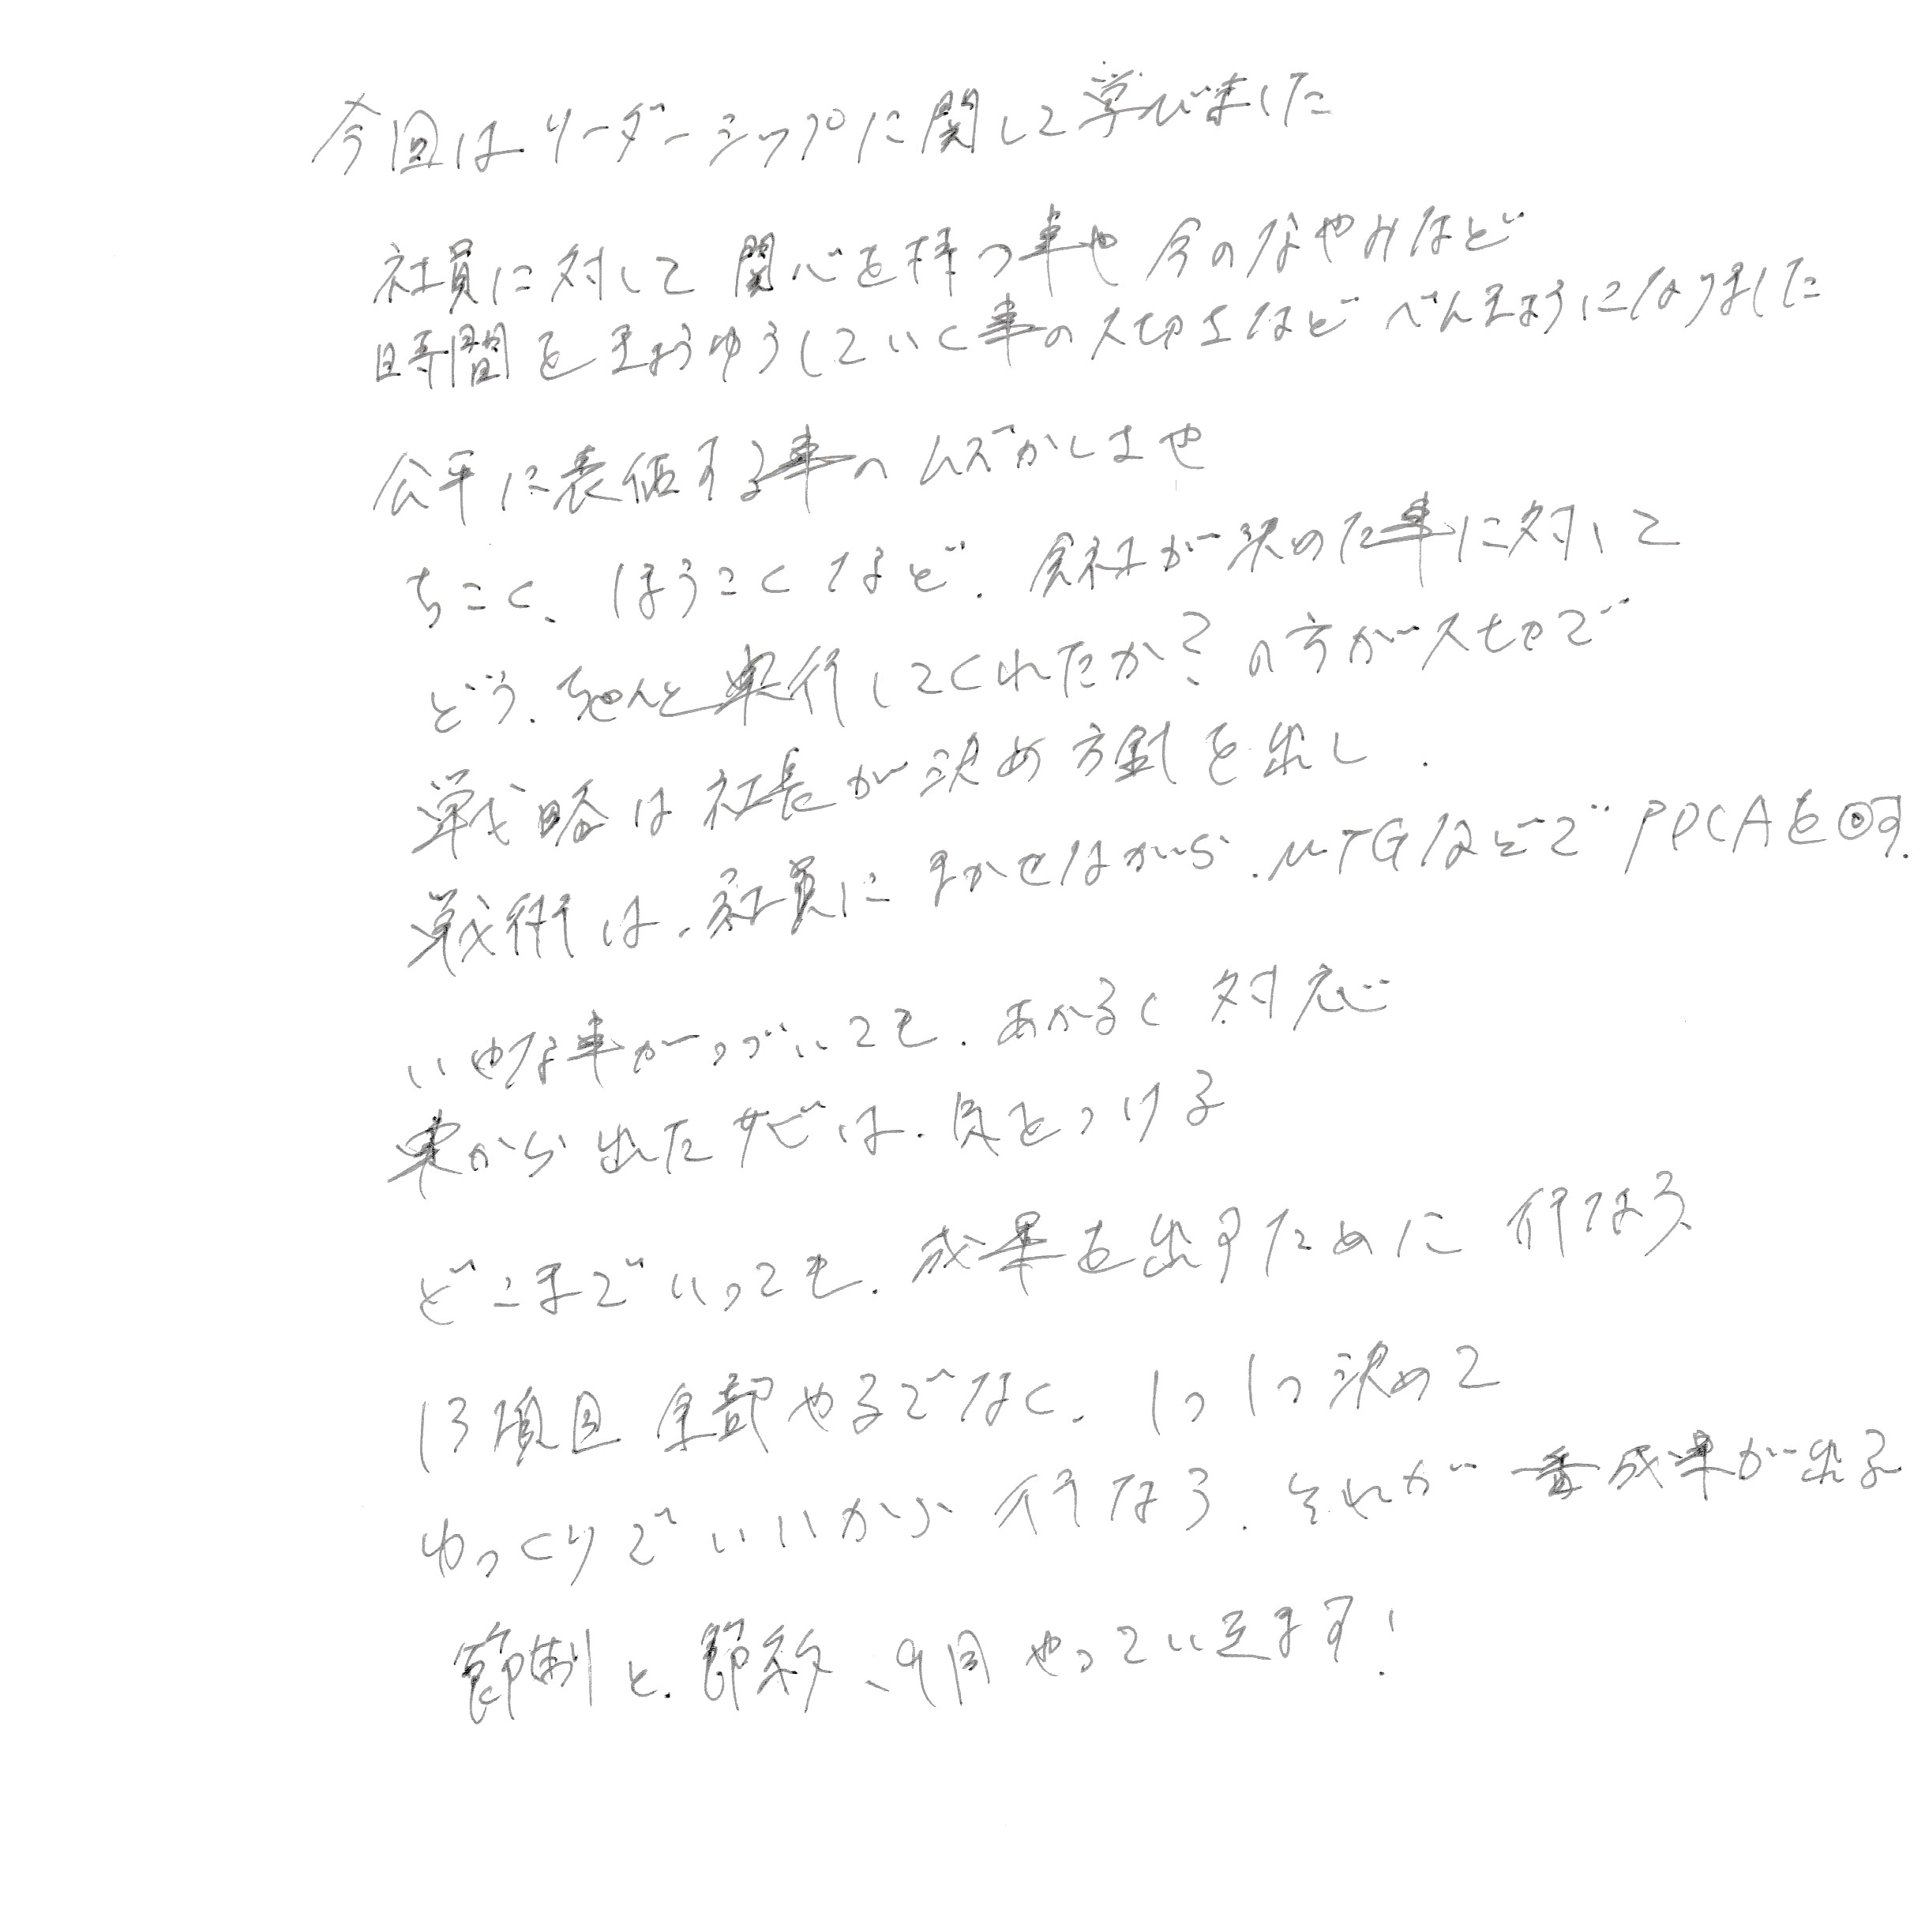 今回はリーダーシップに関して学びました
社員に対して関心を持つ事や今のなやみなど
時間をきょうゆうしていく事の大切さなどべんきょうになりました
公平に表価する事のムズかしさや
ちこく、ほうこくなど、会社が決めた事に対して
どう、ちゃんと実行してくれたか?の方が大切で
戦略は社長が決め方針を出し、
戦術は、社員にまかせながら、MTGなどでPDCAを回す。
いやな事がつづいても、あかるく対応
実から出たサビは、気をつける
どこまでいっても、成果を出すために行なう、
13項目全部やるでなく、1つ1つ決めて
ゆっくりでいいから行なう、それが一番成果が出る
節制と、節約、9月やっていきます!